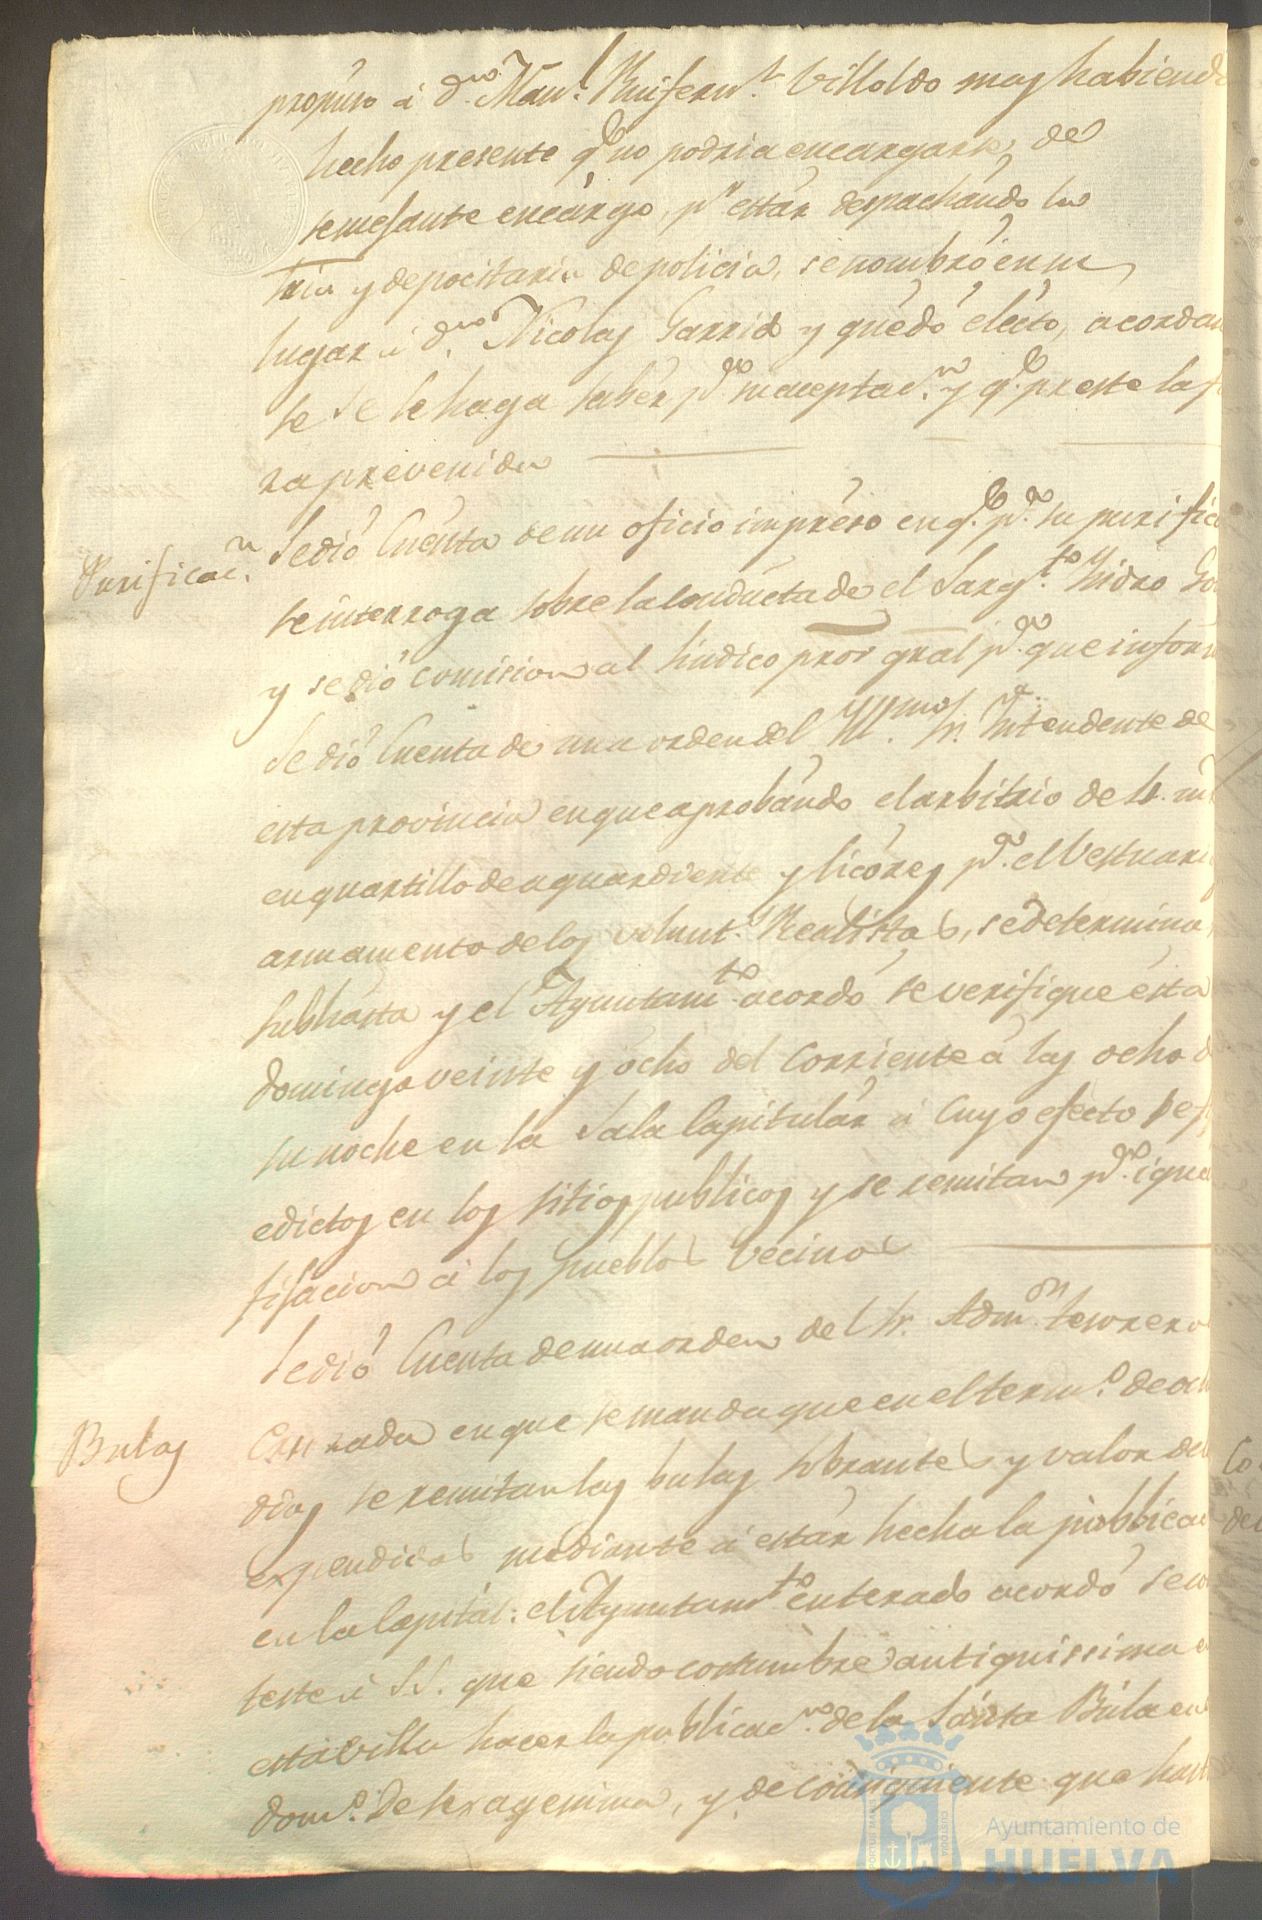 propuso á Dn. Manl. Ruifernz. Villoldo mas habiendo
hecho presente qe. no podria encargarse de
semejante encárgo, pr. estár despachándo la
tria y depocitaria de policia, se nombró en su
lugar á Dn. Nicolas Garrido y quedó elécto, acordan
se se le haga sabér pa. su aceptacn. y qe. preste la
za prevenida
Purificacn.
Se dió Cuénta de un oficio impréso en qe. pa. su purifica
se interroga sobre la condúcta de el Sargto. Ysidro Go
y se dió comision al Sindico pror. gral pa. que inform
Se dió Cuenta de una orden del Yllmo. Sr. Yntendente de
esta provincia en que aprobándo el arbitrio de
en quartillo de aguardiente y licóres pa. el Vestuari
armamento de los volunts. Realistas, se determina
subhasta y el Ayuntamto. acordó se verifique ésta
domingo veinte y ócho del corriente á las ocho d
su noche en la Sala Capitulár á cuyo efecto se
edictos en los sitios publicos y se remitan pa. igua
fijacion á los pueblos vecinos
Bulas
Se dió Cuenta de una orden del Sr. Admon. tesorero
Cruzada en que se manda que en el termo. de
dias se remitan las bulas sobrantes y valor de
expendidas mediante á estár hecha la publicac
en la Capitál: el Ayuntamto. enterado acordó se con
teste á SS. que siendo costumbre antiquissima e
esta Villa hacer la publicacn. de la Sánta Búla en
domo. de sexagesima, y de consiguiente que hast
Co
de
PORTUS MARIS
CUSTODIA
Ayuntamiento de
HUELVA